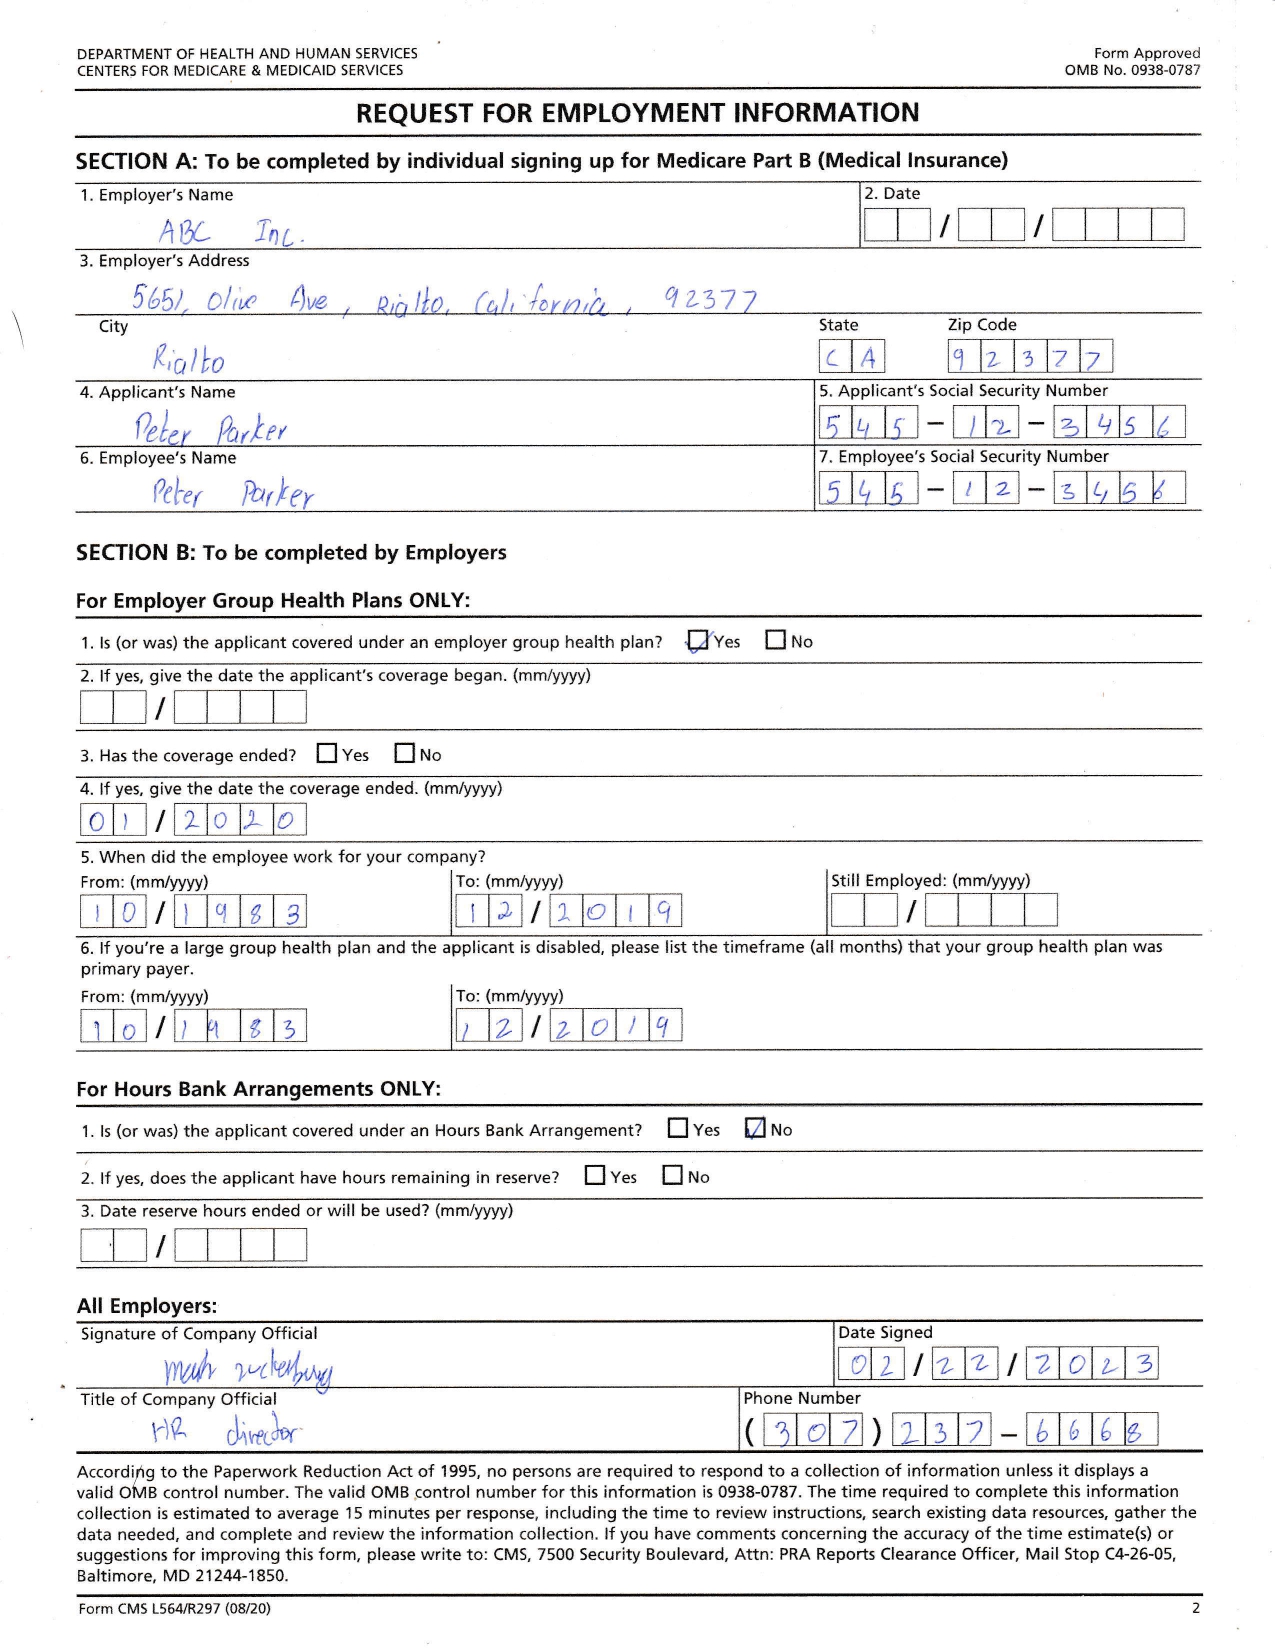 DEPARTMENT OF HEALTH AND HUMAN SERVICES
CENTERS FOR MEDICARE & MEDICAID SERVICES
Form Approved
OMB No. 0938-0787
REQUEST FOR EMPLOYMENT INFORMATION
SECTION A: To be completed by individual signing up for Medicare Part B (Medical Insurance)
1. Employer's Name
ABC Inc.
2. Date
/ /
3. Employer's Address
5651, Olive Ave, Rialto, California, 92377
City
Rialto
State
CA
Zip Code
92377
4. Applicant's Name
Peter Parker
5. Applicant's Social Security Number
545-12-3456
6. Employee's Name
Peter Parker
7. Employee's Social Security Number
545-12-3456
SECTION B: To be completed by Employers
For Employer Group Health Plans ONLY:
1. Is (or was) the applicant covered under an employer group health plan? Yes No
2. If yes, give the date the applicant's coverage began. (mm/yyyy)
/
3. Has the coverage ended? Yes No
4. If yes, give the date the coverage ended. (mm/yyyy)
01/2020
5. When did the employee work for your company?
From: (mm/yyyy) To: (mm/yyyy) Still Employed: (mm/yyyy)
10/1983 12/2019 /
6. If you're a large group health plan and the applicant is disabled, please list the timeframe (all months) that your group health plan was
primary payer.
From: (mm/yyyy) To: (mm/yyyy)
10/1983 12/2019
For Hours Bank Arrangements ONLY:
1. Is (or was) the applicant covered under an Hours Bank Arrangement? Yes No
2. If yes, does the applicant have hours remaining in reserve? Yes No
3. Date reserve hours ended or will be used? (mm/yyyy)
/
All Employers:
Signature of Company Official
Mark zuckerburg
Date Signed
02/22/2023
Title of Company Official
HR director
Phone Number
(307)237-6668
According to the Paperwork Reduction Act of 1995, no persons are required to respond to a collection of information unless it displays a
valid OMB control number. The valid OMB control number for this information is 0938-0787. The time required to complete this information
collection is estimated to average 15 minutes per response, including the time to review instructions, search existing data resources, gather the
data needed, and complete and review the information collection. If you have comments concerning the accuracy of the time estimate(s) or
suggestions for improving this form, please write to: CMS, 7500 Security Boulevard, Attn: PRA Reports Clearance Officer, Mail Stop C4-26-05,
Baltimore, MD 21244-1850.
Form CMS L564/R297 (08/20)
2